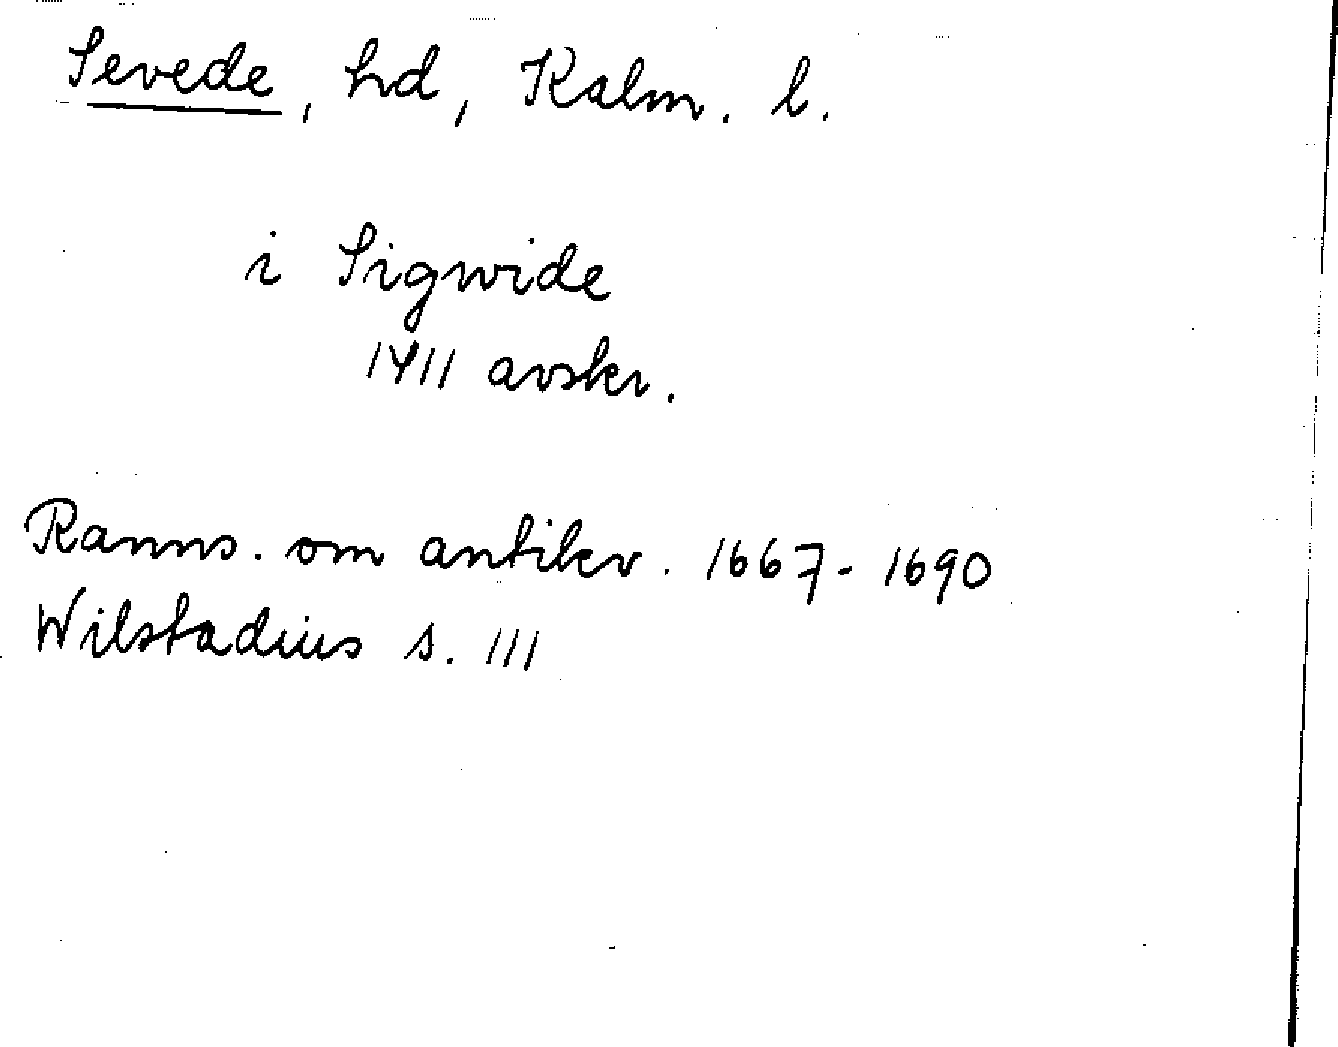 Sevede, hd, Kalm. l.
i Sigwide
1411 avskr.
Ranns. om antikv. 1667-1690
Wilstadius s. 111